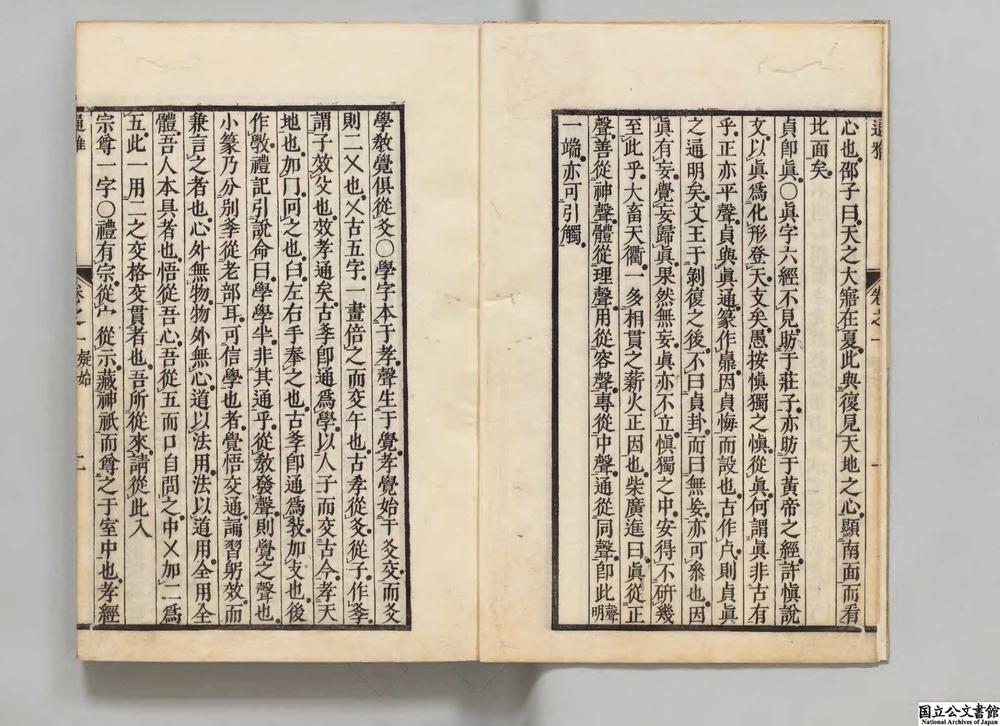 心也邵子曰天之大寤在夏此與復見天地之心顯南面而看
北面矣
貞卽眞○眞字六經不見昉于莊子亦昉于黃帝之經許愼說
文以眞爲化形登天文矣愚按愼獨之愼從眞何謂眞非古有
乎正亦平聲貞與眞通篆作鼎因貞悔而設也古作𠧦則貞眞
之通明矣文王于剝復之後不曰貞卦而曰無妄亦可叅也因
眞有妄覺妄歸眞果然無妄眞亦不立愼獨之中安得不硏幾
至此乎大畜天衢一多相貫之薪火正因也柴廣進曰眞從正
聲善從神聲體從理聲用從容聲專從中聲通從同聲卽此聲明
一端亦可引觸
通雅
卷之一
一
學敎覺俱從爻○學字本于孝聲生于覺孝覺始于爻交而爻
則二㐅也㐅古五字一畫倍之而交午也古孝從爻從子作孝
謂子效父也效孝通矣古孝卽通爲學以人子而交古今孝天
地也加冂冋之也𦥑左右手奉之也古孝卽通爲敎加攴也後
作斆禮記引說命曰學學半非其通乎從敎發聲則覺之聲也
小篆乃分別孝從老部耳可信學也者覺悟交通誦習躬效而
兼言之者也心外無物物外無心道以法用法以道用全用全
體吾人本具者也悟從吾心吾從五而口自問之中㐅加二爲
五此一用二之交格交貫者也吾所從來請從此入
宗尊一字○禮有宗從宀從示藏神祇而尊之于室中也孝經
通雅
卷之一 疑始
二
国立公文書館
National Archives of Japan